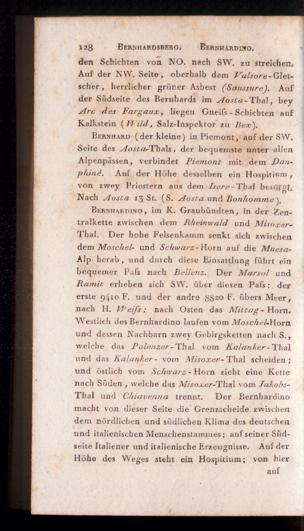 128 BERNHARDSBERG. BERNHARDINO.
den Schichten von NO. nach SW. zu streichen.
Auf der NW. Seite, oberhalb dem Valsore-Glet-
scher, herrlicher grüner Asbest (Saussure). Auf
der Südseite des Bernhards im Aosta-Thal, bey
Arc des Fargaux, liegen Gneifs-Schichten auf
Kalkstein (Wild, Salz-Inspektor zu Bex).
BERNHARD (der kleine) in Piemont, auf der SW.
Seite des Aosta-Thals, der bequemste unter allen
Alpenpässen, verbindet Piemont mit dem Dau-
phiné. Auf der Höhe desselben ein Hospitium,
von zwey Priestern aus dem Isere-Thal besorgt.
Nach Aosta 13 St. (S. Aosta und Bonhomme).
BERNHARDINO, im K. Graubündten, in der Zen-
tralkette zwischen dem Rheinwald und Misoxer-
Thal. Der hohe Felsenkamm senkt sich zwischen
dem Moschel- und Schwarz-Horn auf die Muesa-
Alp herab, und durch diese Einsattlung führt ein
bequemer Pafs nach Bellenz. Der Marsol und
Ramis erheben sich SW. über diesen Pafs; der
erste 9410 F. und der andre 8820 F. übers Meer,
nach H. Weifs; nach Osten das Mittag-Horn.
Westlich des Bernhardino laufen vom Moschel-Horn
und dessen Nachbarn zwey Gebirgsketten nach S.,
welche das Polenzer-Thal vom Kalanker-Thal
und das Kalanker- vom Misoxer-Thal scheiden;
und östlich vom Schwarz-Horn zieht eine Kette
nach Süden, welche das Misoxer-Thal vom Jakobs-
Thal und Chiavenna trennt. Der Bernhardino
macht von dieser Seite die Grenzscheide zwischen
dem nördlichen und südlichen Klima des deutschen
und italienischen Menschenstammes; auf seiner Süd-
seite Italiener und italienische Erzeugnisse. Auf der
Höhe des Weges steht ein Hospitium; von hier
auf